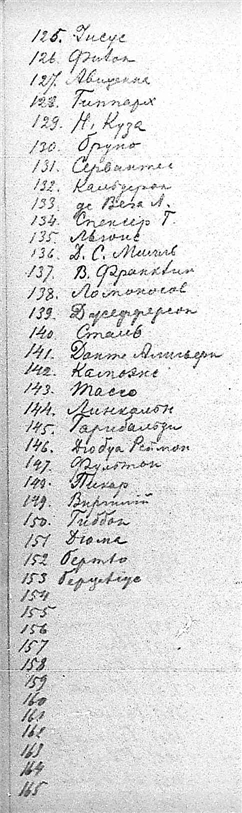 125. Іисус
126. Фихои
127. Авиценна
128. Гиппарх
129. Н. Куза
130. Бруно
131. Сервантес
132. Кальдерон
133. де Вега Л.
134. Спенсер Г.
135. Льюис
136. Д. С. Милль
137. В. Франклин
138. Ломоносов
139. Джефферсон
140. Сталь
141. Данте Алигьери
142. Камоэнс
143. Тассо
144. Линкольн
145. Гарибальди
146. Дюбуа Реймон
147. Фультон
148. Пикар
149. Виргилий
150. Гиббон
151 Дюма
152 Бертло
153 Берцелиус
154
155
156
157
158
159
160
161
162
163
164
165